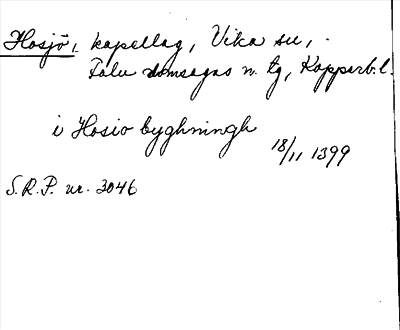 Hosjö, kapellag, Vika sn,
Falu domsagas n. tg, Kopparb. l.
i Hosio byghningh
18/11 1399
S.R.P. nr. 3046